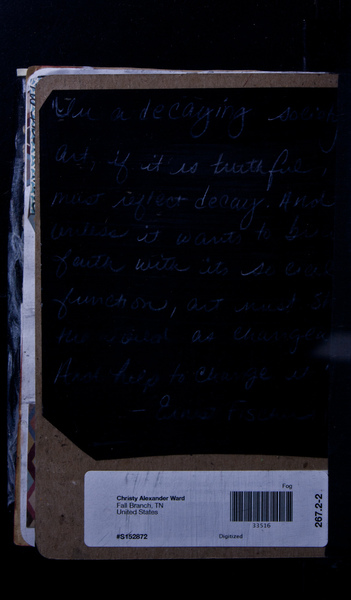 "In a decaying society
art, if it is truthful,
must reflect decay. And
unless it wants to be
faith with its social
function, art must
as changea
And help to change it
— Ernst Fischer
Fog
Christy Alexander Ward
Fall Branch, TN
United States
#S152872
31516
Digitized
267.2-2